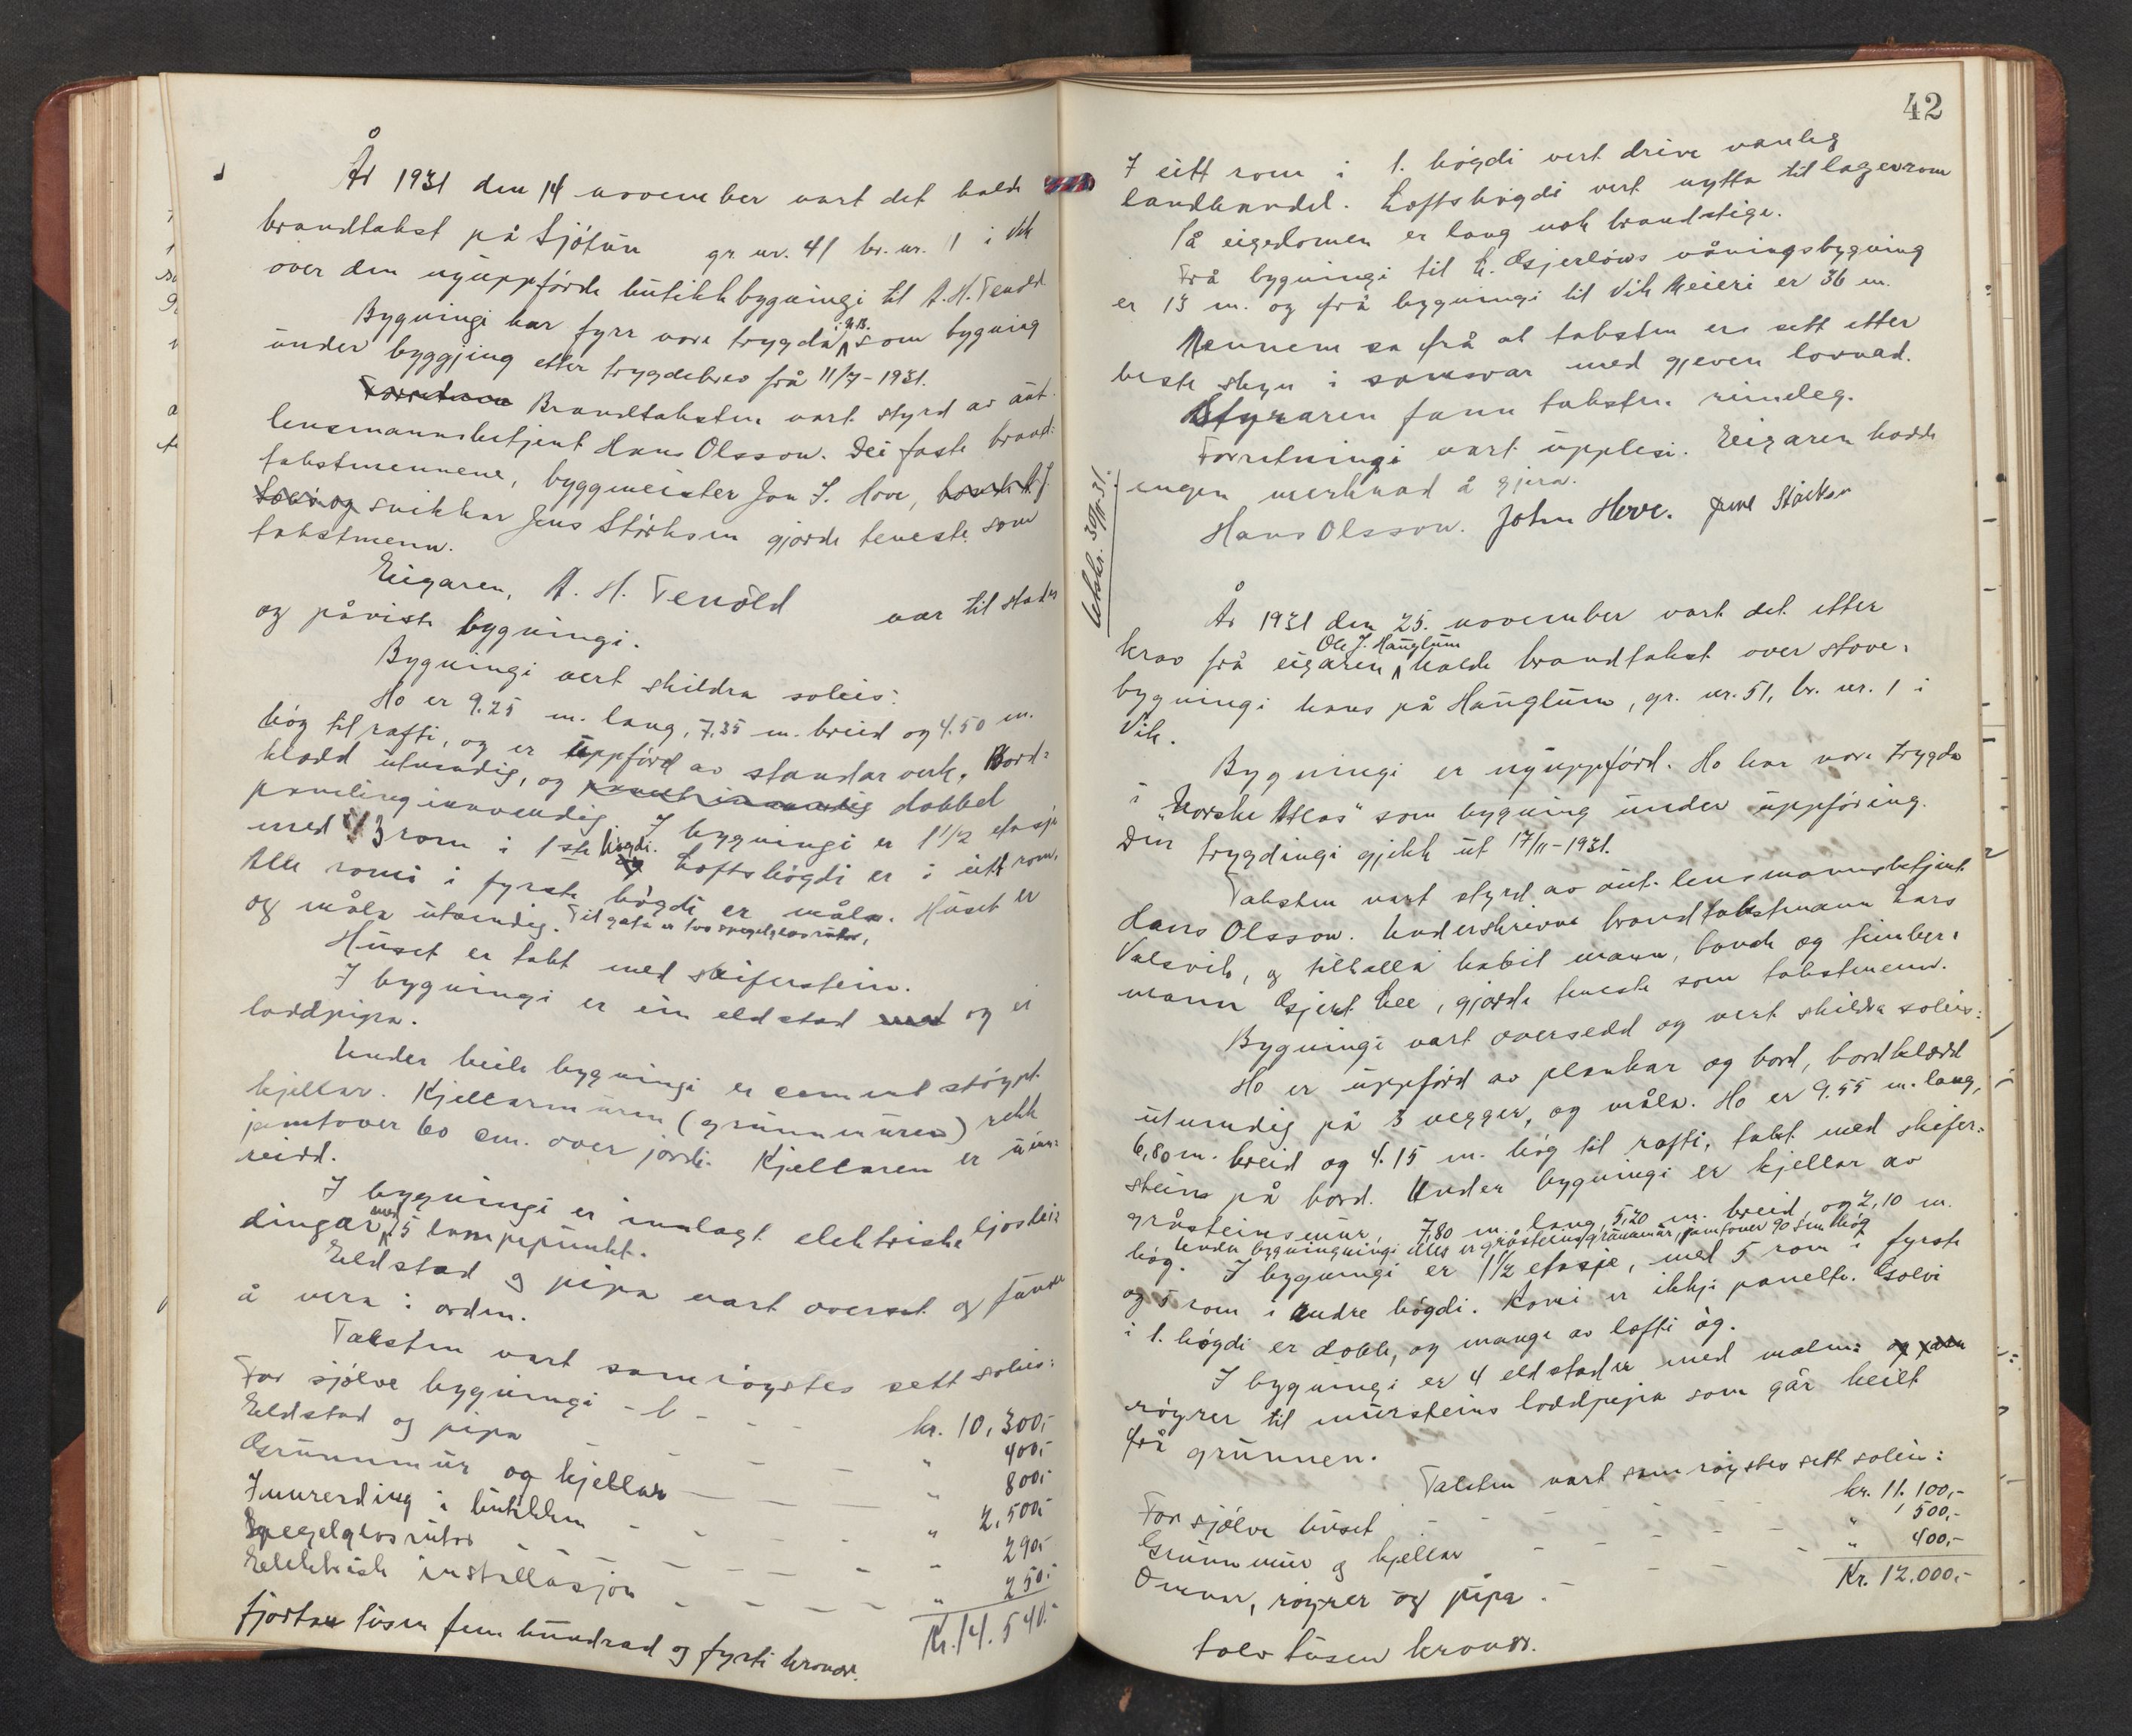 År 1931 den 14 november vart det halde
brandtakst på Sjötun gr. nr. 41 br. nr. 1 i Vik
över den nyuppförde butikkbygningi til A. H. Tenold
Bygningi har fyrr vore trygda i N.B. som bygning
under byggjing etter trygdebrev frå 11/7-1931.
Brandtaksten vart styrd av aut.
lensmannsbetjent Hans Olsson. Dei faste brand-
takstmennene, byggmeister Jon J. Hove,
snikkar Jens Störksen gjorde teneste som
takstmenn.
Eigaren, A. H. Tenold var til stades
og påviste bygningi.
Bygningi vert skildra soleis:
Ho er 9.25 m. lang, 7.35 m. breid og 4.50 m.
hög til rafti, og er uppförd av standar verk. Bord-
klædd utvendig, og dobbel
paneling innvendig. I bygningi er 1 1/2 etasje
med 3 rom i 1ste högdi. Loftshögdi er i eitt rom.
Alle romi i fyrste högdi er måla. Huset er
og måla utvendig. Til gata er tvo spegelglasrutor,
Huset er takt med skiferstein.
I bygningi er ein eldstad og ei
loddpipa.
Under heile bygningi er cement stöypt
kjellar. Kjellarmuren (grunnmuren) rekk
jamtover 60 cm. over jordi. Kjellaren er uinn-
reidd.
I bygningi er innlagt elektriske ljoslei-
dingar med 15 lampepunkt.
Eldstad og pipa vart overset og funde
å vera i orden.
Taksten vart samröystes sett soleis:
For sjölve bygningi - b - - - kr. 10,300,-
Eldstad og pipa - - - - " 400,-
Grunnmur og kjellar - - - " 800,-
Innreiding i butikken - - - " 2,500,-
Spegelglasrutor - - - - " 290,-
Elektrisk installasjon - - - - " 250,-
Kr. 14.540.-
fjortan tusen fem hundrad og fyrti kronor.
42
I eitt rom i 1. högdi vert drive vanleg
landhandel. Loftshögdi vert nytta til lagerrom
På eigedomen er lang nok brandstige.
Frå bygningi til H. Gjerlöws våningsbygning
er 13 m. og frå bygningi til Vik Meieri er 36 m.
Mennene sa frå at taksten er sett etter
beste skyn i samsvar med gjeven lovnad.
Styraren fann taksten rimeleg.
Forretningi vart upplesi. Eigaren hadde
ingen merknad å gjera.
Hans Olsson. John Hove. Jens Störksen
Utskr. 30/11-31.
År 1931 den 25. november vart det etter
krav frå eigaren Ole J. Hauglum halde brandtakst over stove-
bygningi hans på Hauglum, gr. nr. 51, br. nr. 1 i
Vik.
Bygningi er nyuppförd. Ho har vore trygda
i "Norske Atlas" som bygning under uppföring.
Den trygdingi gjekk ut 17/11-1931.
Taksten vart styrd av aut. lensmannsbetjent
Hans Olsson. Underskrivne brandtakstmann Lars
Valsvik, og tilkalla habil mann, bonde og timber-
mann Gjert Lee, gjorde teneste som takstmenn.
Bygningi vart oversedd og vert skildra soleis:
Ho er uppförd av plankar og bord, bordklædd
utvendig på 3 vegger, og måla. Ho er 9.55 m. lang,
6,80 m. breid og 4.15 m. hög til rafti, takt med skifer-
stein på bord. Under bygningi er kjellar av
gråsteinsmur, 7,80 m. lang, 5,20 m. breid, og 2,10 m.
hög. Under bygningningi elles er gråsteinsgrunnmur, jamtover 90 sm hög
I bygningi er 1 1/2 etasje, med 5 rom i fyrste
og 5 rom i andre högdi. Romi er ikkje panelte. Golvi
i 1. högdi er doble, og mange av lofti òg.
I bygningi er 4 eldstader med malm-
röyrer til mursteins loddpipa som går heilt
frå grunnen.
Taksten vart samröystes sett soleis:
For sjölve huset - - - - - kr. 11.100,-
Grunnmur og kjellar - - - - " 500,-
Omnar, röyrer og pipa - - - " 400,-
Kr. 12.000,-
tolv tusen kronor.